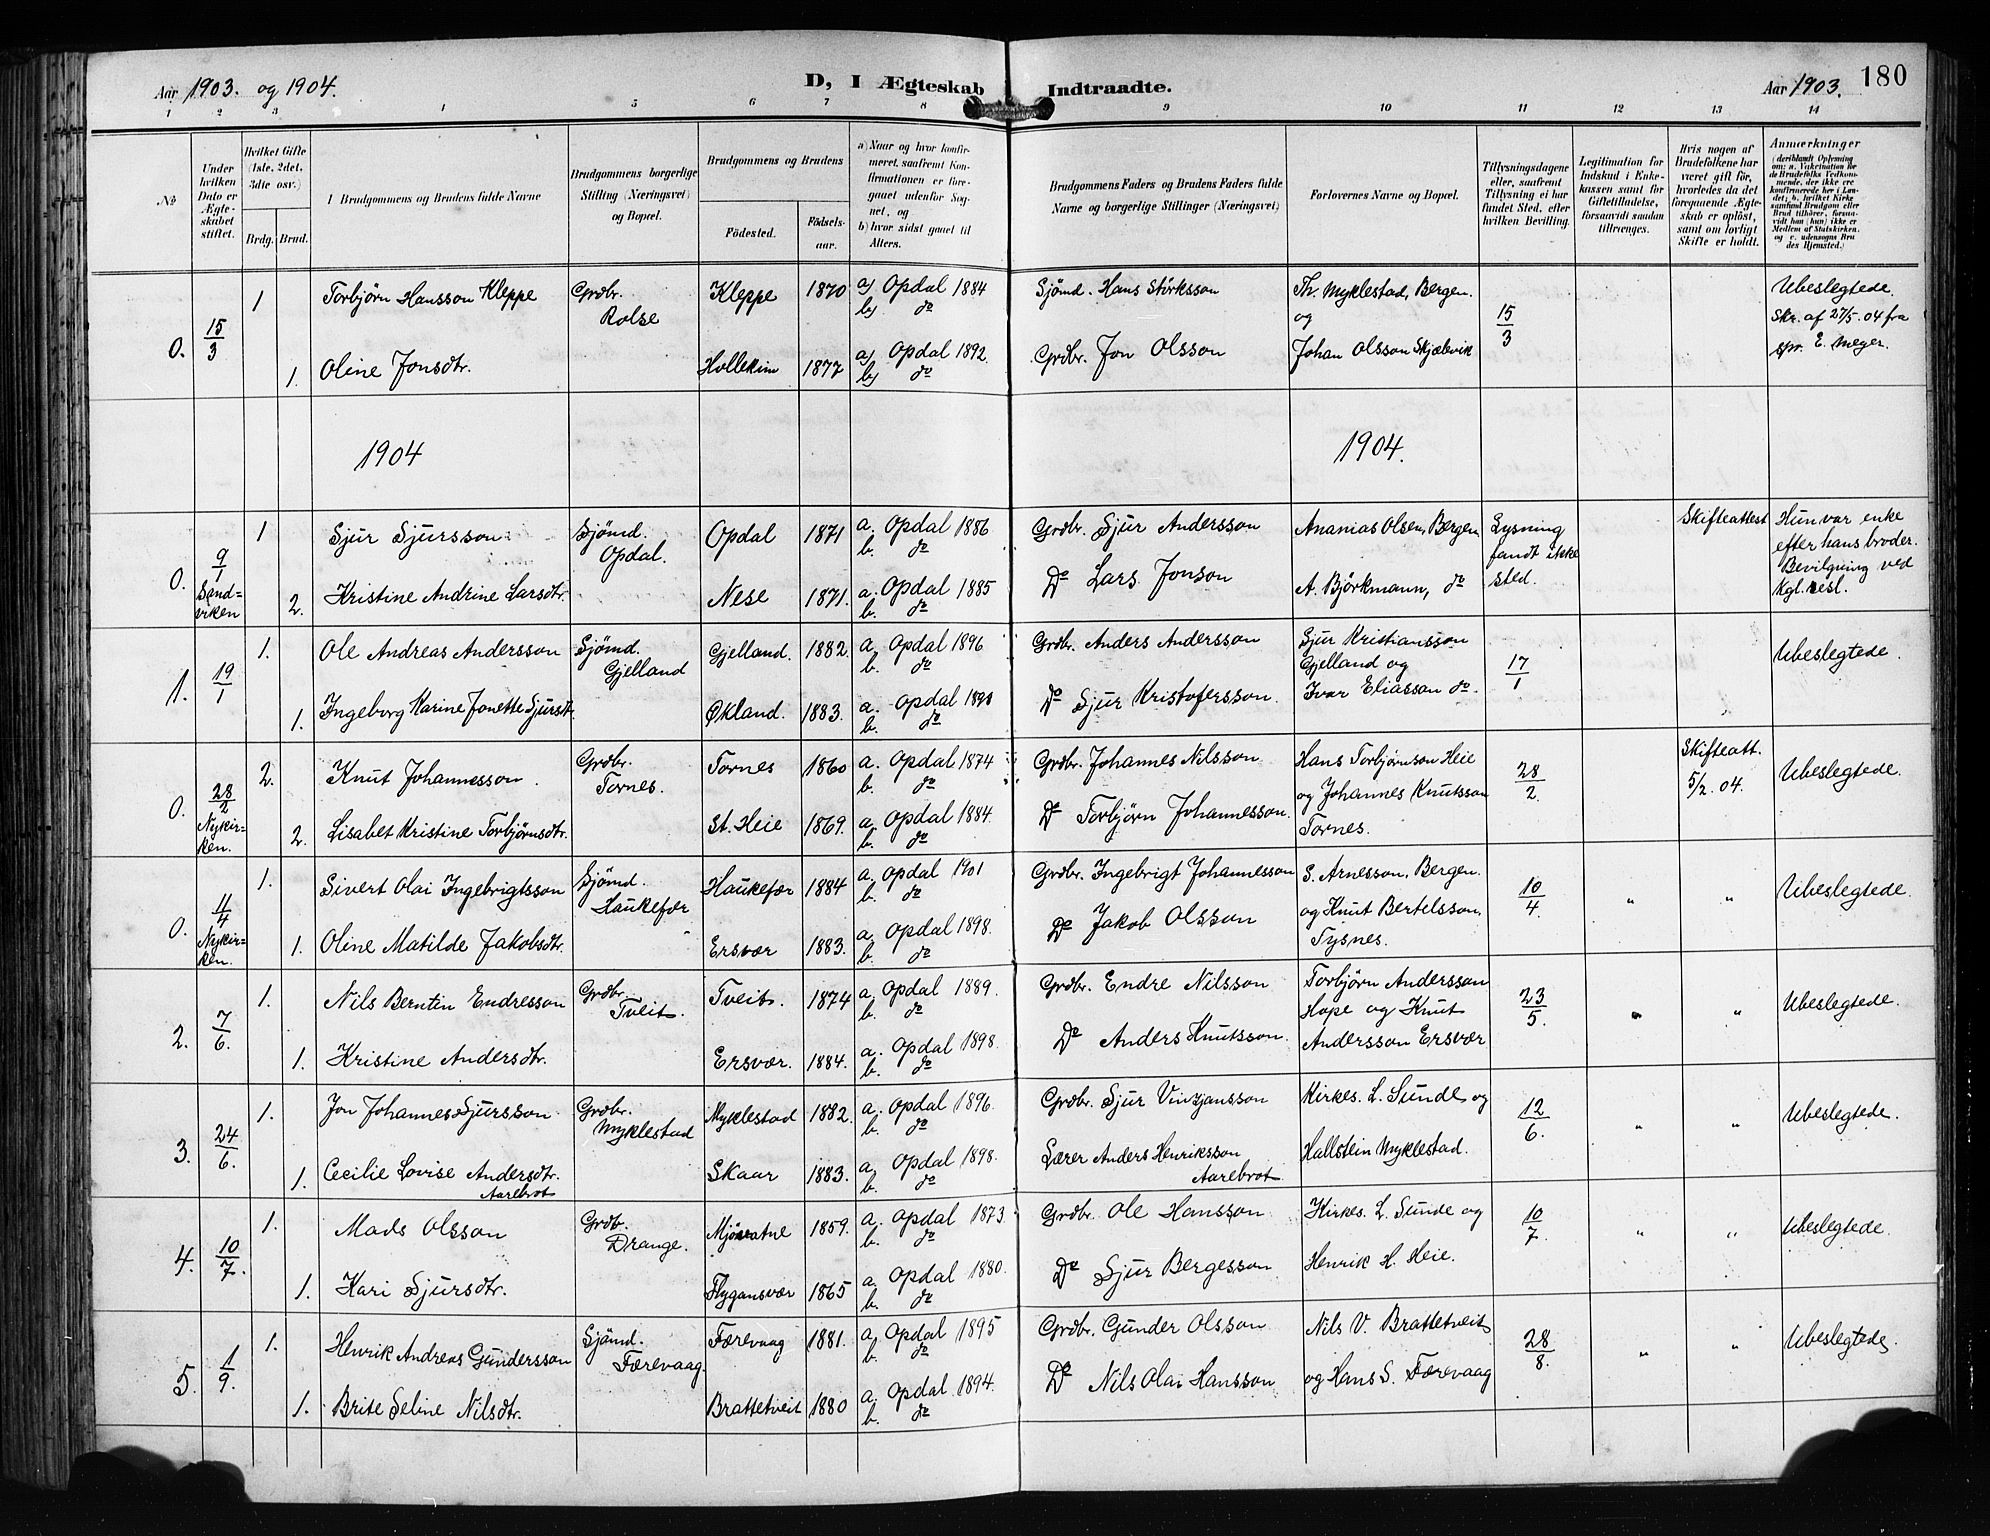 Aar 1903. og 1904.
D, I Ægteskab Indtraadte.
Aar 1903. 180
1 2 3 4 5 6 7 8 9 10 11 12 13 14
No
Under hvilken Dato er Ægteskabet stiftet.
Hvilket Gifte (1ste, 2det, 3die osv.)
Brdg. Brud.
Brudgommens og Brudens fulde Navne
Brudgommens borgerlige Stilling (Næringsvei) og Bopæl.
Brudgommens og Brudens
Födested. Födselsaar.
a) Naar og hvor konfirmeret, saafremt Konfirmationen er foregaaet udenfor Sognet, og
b) hvor sidst gaaet til Alters.
Brudgommens Faders og Brudens Faders fulde Navne og borgerlige Stillinger (Næringsvei)
Forlovernes Navne og Bopæl.
Tillysningsdagene eller, saafremt Tillysning ei har fundet Sted, efter hvilken Bevilling.
Legitimation for Indskud i Enkekassen samt for Giftetilladelse, forsaavidt saadan tiltrænges.
Hvis nogen af Brudefolkene har været gift før, hvorledes da det foregaaende Ægteskab er oplöst, samt om lovligt Skifte er holdt.
Anmærkninger
0. 15/3 1 Torbjörn Hansson Kleppe Grdbr. Rolse Kleppe 1870 a) Opdal 1884 b) do Sjömd. Hans Störksson Th. Myklestad, Bergen. og 15/3 Ubeslegtede. Skr. af 27/5. 04 fra spr. E. Meyer.
1. Oline Jonsdtr. Hollekim 1877 a) Opdal 1892. b) do Grdbr. Jon Olsson Johan Olsson Skjælvik
1904 1904.
0. 9/1 Sandviken 1 Sjur Sjursson Sjömd. Opdal. Opdal 1871 a. Opdal 1886 b. do Grdbr. Sjur Andersson Ananias Olsen, Bergen Lysning fandt ikke sted. Skifteattest Hun var enke efter hans broder. Bevilgning ved Kgl. resl.
2. Kristine Andrine Larsdtr. Nese 1871. a. Opdal 1885 b. do Do Lars Jonson A. Björkmann, do
1. 19/1 1. Ole Andreas Andersson Sjömd. Gjelland Gjelland. 1882. a. Opdal 1896 b. do Grdbr. Anders Andersson Sjur Kristiansson Gjelland og 17/1 Ubeslegtede.
1. Ingeborg Karine Jonette Sjursdt. Økland. 1883. a. Opdal b. do Do Sjur Kristofersson. Ivar Eliasson do.
0. 28/2 Nykirken. 2. Knut Johannesson Grdbr. Tornes. Tornes 1860 a. Opdal 1874 b. do Grdbr. Johannes Nilsson Hans Torbjørnson Heie 28/2. Skifteatt. 5/2. 04. Ubeslegtede.
2. Lisabet Kristine Torbjörnsdtr. St. Heie 1869. a. Opdal 1884. b. do Do Torbjörn Johannesson. og Johannes Knutsson Tornes.
0. 4/4 Nykirken. 1. Sivert Olai Ingebrigtsson Sjömd. Haukefær Haukefær 1884 a. Opdal 1901 b. do Grdbr. Ingebrigt Johannesson S. Arnesson, Bergen. 10/4. " " Ubeslegtede.
1. Oline Matilde Jakobsdtr. Ersvær 1883. a. Opdal 1898. b. do Do Jakob Olsson og Knut Bertelsson, Tysnes.
2. 7/6. 1. Nils Berntin Endresson Grdbr. Tveit. Tveit. 1874 a. Opdal 1889. b. do Grdbr. Endre Nilsson Torbjörn Andersson 23/5. " " Ubeslegtede.
1. Kristine Andersdtr. Ersvær. 1884. a. Opdal 1898. b. do Do Anders Knutsson. Hope og Knut Andersson Ersvær
3. 24/6. 1. Jon Johannes Sjursson Grdbr. Myklestad Myklestad 1882. a. Opdal 1896. b. do Grdbr. Sjur Vinzjansson Kirkes. L. Sunde og 12/6. " " Ubeslegtede.
1. Cecilie Lovise Andersdtr. Aarebrot Skaar 1883. a. Opdal 1898. b. do Lærer Anders Henriksson Aarebrot. Hallstein Myklestad.
4. 10/7. 1. Mads Olsson Grdb. Drange. 1859. a. Opdal 1873. b. do Grdbr. Ole Hansson Kirkes. L. Sunde og 10/7. " " Ubeslegtede.
1. Kari Sjursdtr. Flygansvær 1865 a. Opdal 1880. b. do Do Sjur Bergesson Henrik H. Heie.
5. 1/9. 1. Henrik Andreas Gundersson Sjömd. Færevaag. Færevaag 1881. a. Opdal 1895 b. do Grdbr. Gunder Olsson Nils V. Brattetveit 28/8. " " Ubeslegtede.
1. Brite Seline Nilsdtr. Brattetveit 1880 a. Opdal 1894. b. do Do Nils Olai Hansson og Hans S. Færevaag